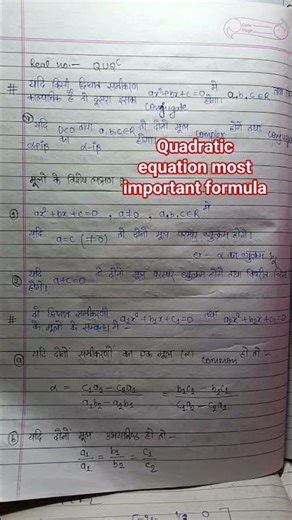 Real no.:- QUQᶜ
# यदि किसी द्विघात समीकरण ax²+bx+c=0 में a,b,c∈R
काल्पनिक है तो दूसरा इसका conjugate होगा।
यदि D<0 तथा a,b,c∈R तो दोनों मूल complex होंगे तथा conjugate
α+iβ का α-iβ होगा।
Quadratic
equation most
important formula
मूलों के विशेष लक्षण
① ax²+bx+c=0, a≠0, a,b,c∈R में
यदि a=c (≠0) तो दोनों मूल परस्पर व्युत्क्रम होंगे।
② यदि a+c=0 तो दोनों मूल परस्पर व्युत्क्रम होंगे तथा विपरीत चिन्ह
होंगे।
# दो द्विघात समीकरणों a₁x²+b₁x+c₁=0 तथा a₂x²+b₂x+c₂=0
के मूलों के सम्बन्ध में -
ⓐ यदि दोनों समीकरणों का एक मूल common हो तो -
α = c₁a₂-c₂a₁ / a₁b₂-a₂b₁ = b₁c₂-b₂c₁ / c₁a₂-c₂a₁
ⓑ यदि दोनों मूल उभयनिष्ठ हो तो -
a₁/a₂ = b₁/b₂ = c₁/c₂